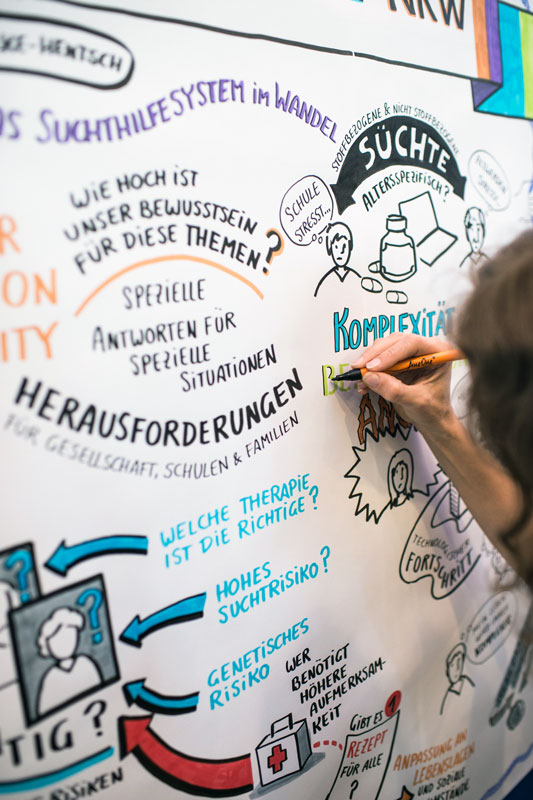 NRW
KE-HENTSCH
SUCHTHILFESYSTEM IM WANDEL
STOFFBEZOGENE & NICHT STOFFBEZOGENE
SÜCHTE
ALTERSSPEZIFISCH?
SCHULE
STRESS...
WIE HOCH IST
UNSER BEWUSSTSEIN
FÜR DIESE THEMEN?
R
ON
ITY
SPEZIELLE
ANTWORTEN FÜR
SPEZIELLE
SITUATIONEN
HERAUSFORDERUNGEN
FÜR GESELLSCHAFT, SCHULEN & FAMILIEN
KOMPLEXITÄT
BE
FORTSCHRITT
WELCHE THERAPIE
IST DIE RICHTIGE?
HOHES
SUCHTRISIKO?
GENETISCHES
RISIKO
WER
BENÖTIGT
HÖHERE
AUFMERKSAM-
KEIT
?
?
TIG?
RISIKEN
GIBT ES 1
REZEPT
FÜR ALLE
?
ANPASSUNG AN
LEBENSLAGEN
UND SOZIALE